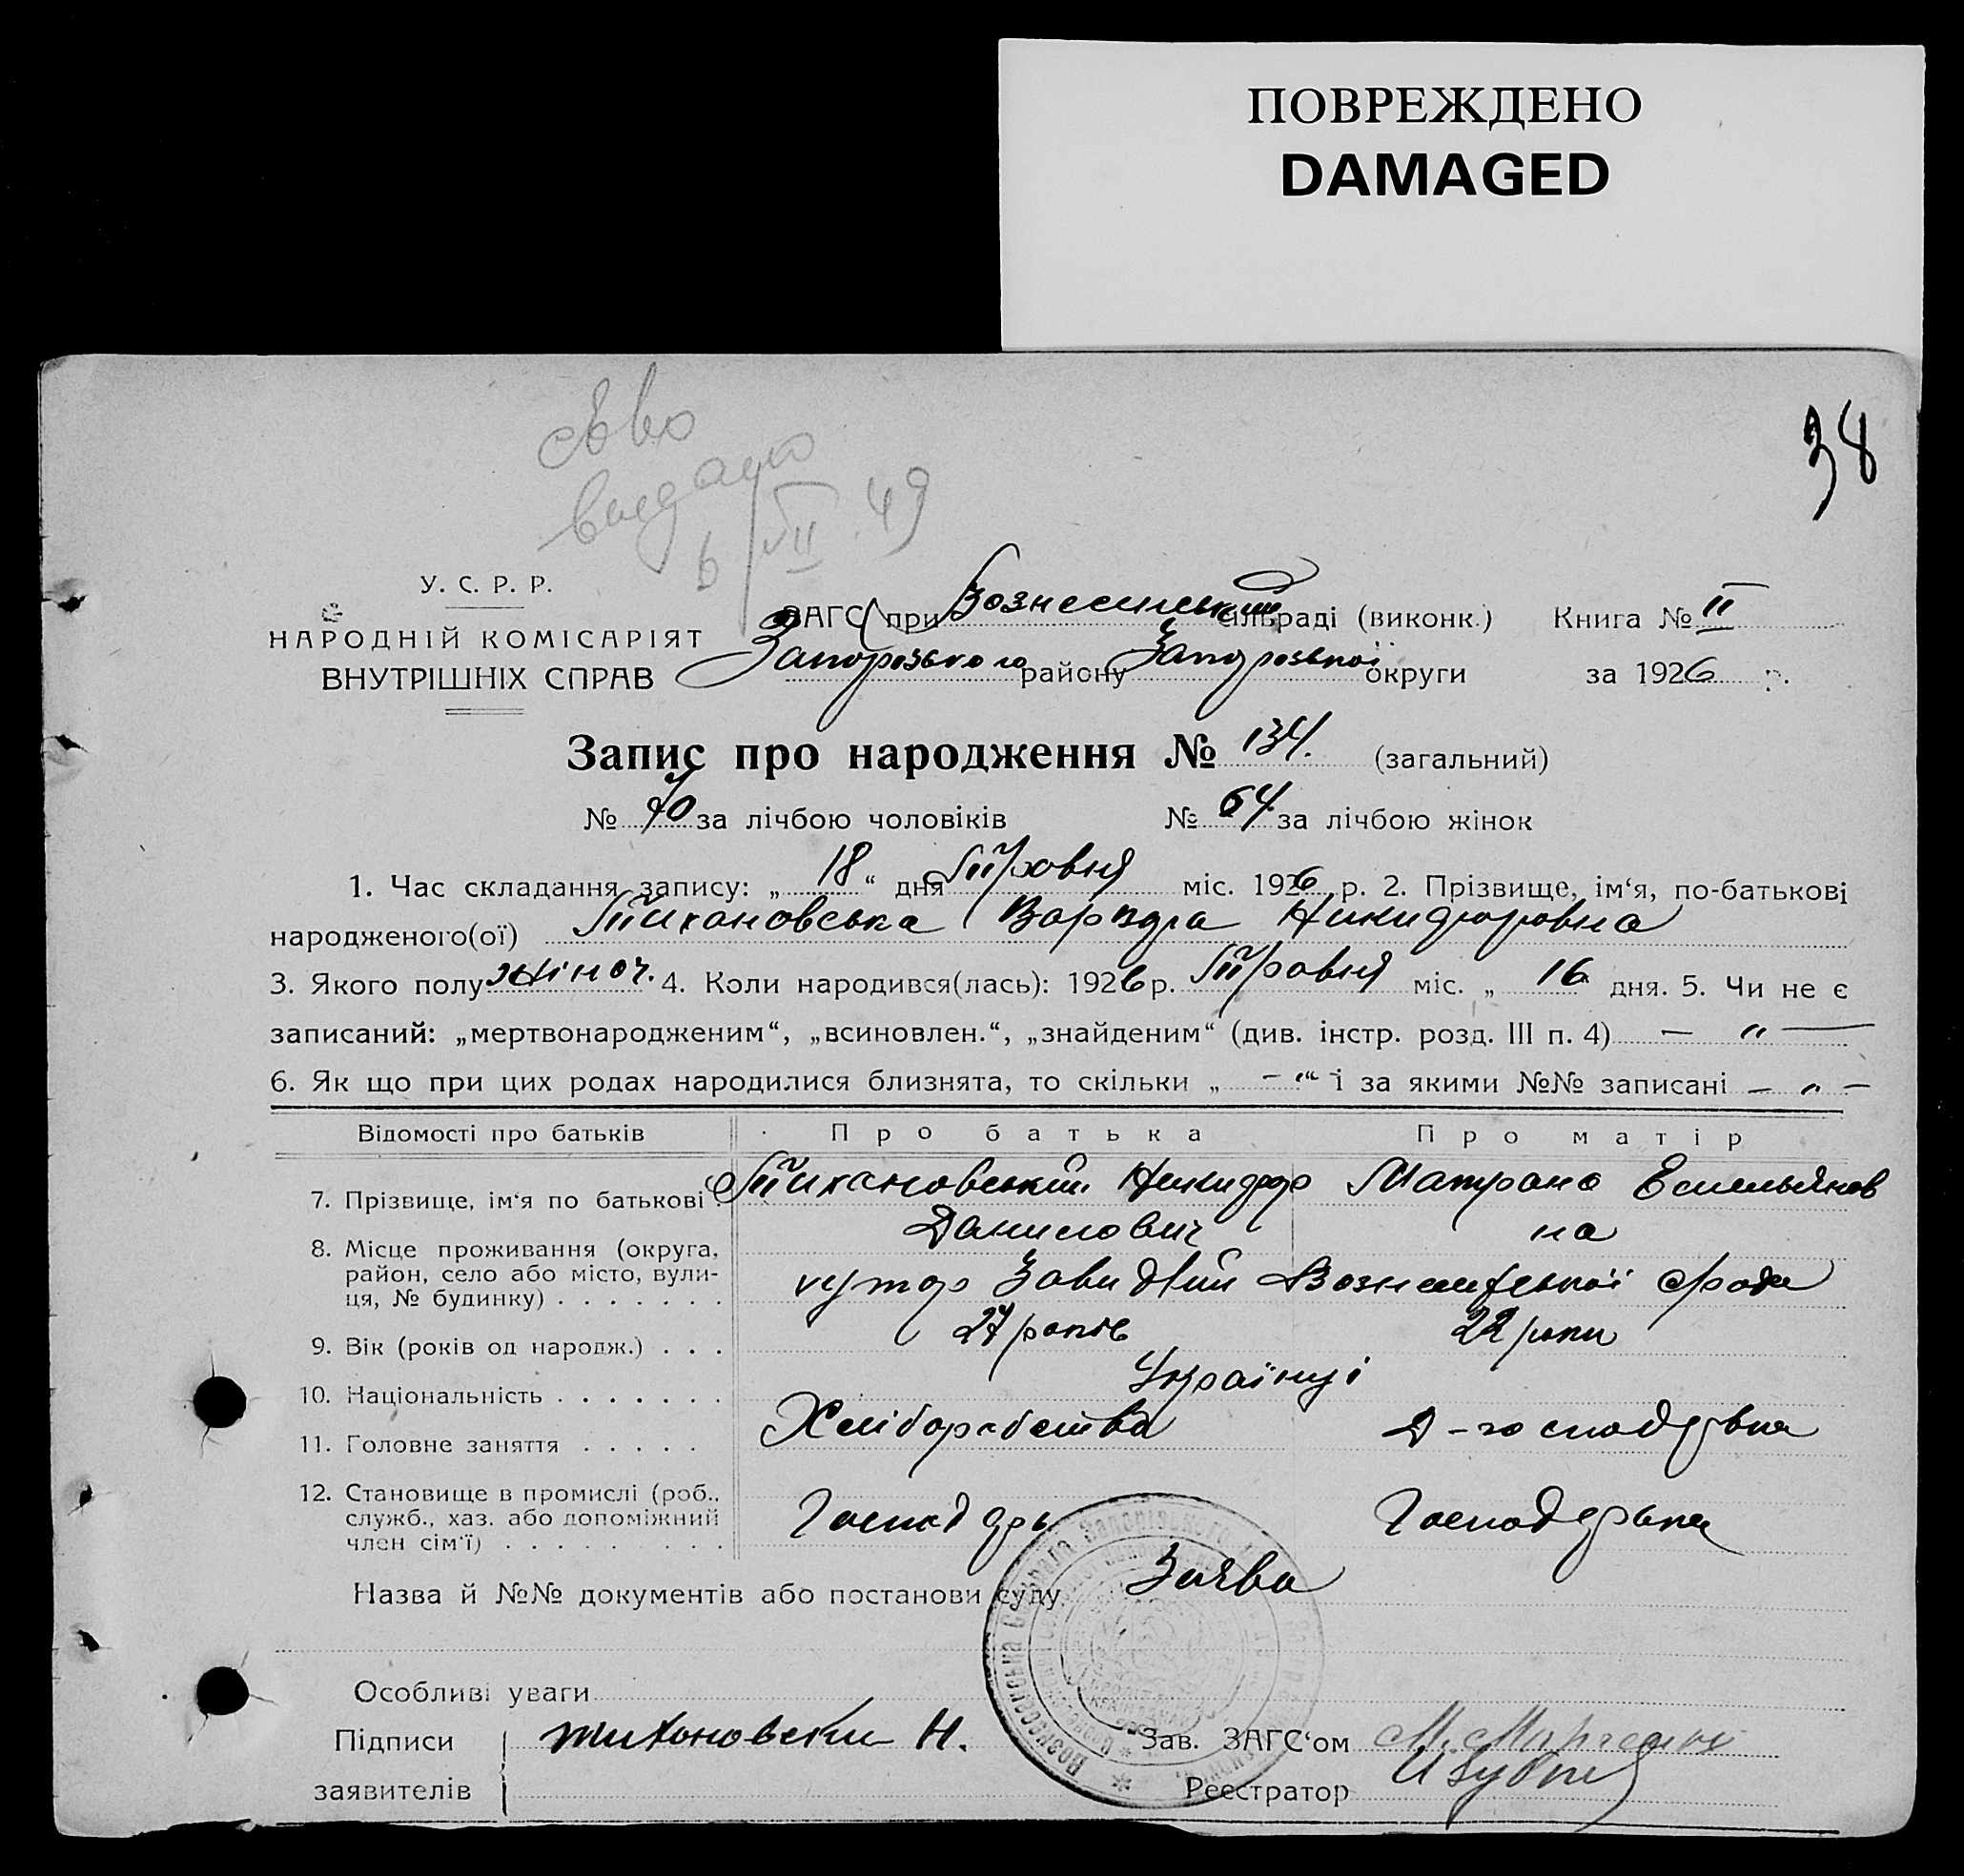 ПОВРЕЖДЕНО
DAMAGED
38
выдано
6/VII.49
У. С. Р. Р.
НАРОДНІЙ КОМІСАРІЯТ
ВНУТРІШНІХ СПРАВ
ЗАГС при Вознесенський сільраді (виконк.) Книга № II
Запорозького району Запорозької округи за 1926 р.
Запис про народження № 134. (загальний)
№ 70 за лічбою чоловіків № 64 за лічбою жінок
1. Час складання запису: „ 18 “ дня Травня міс. 1926 р. 2. Прізвище, ім‘я, по-батькові
народженого(ої) Тихановська Никифоровна
3. Якого полу жіноч. 4. Коли народився(лась): 1926 р. Травня міс. „ 16 дня. 5. Чи не є
записаний: „мертвонародженим“, „всиновлен.“, „знайденим“ (див. інстр. розд. III п. 4) — „ —
6. Як що при цих родах народилися близнята, то скільки „ - “ - і за якими №№ записані — „ —
Відомості про батьків Про батька Про матір
7. Прізвище, ім‘я по батькові Тихановський Никифор Матрона Емельянов
Данилович на
8. Місце проживання (округа,
район, село або місто, вули-
ця, № будинку) . . . . . . . хутор Вознесенської с/ради
9. Вік (років од народж.) . . . 27 років 22 роки
10. Національність . . . . . . . Українці
11. Головне заняття . . . . . Хліборобства Д-господарка
12. Становище в промислі (роб.,
служб., хаз. або допоміжний
член сім‘ї) . . . . . . . . . Господарь Господарька
Назва й №№ документів або постанови суду Заява
Особливі уваги
Підписи тихоновски Н. Зав. ЗАГС‘ом
заявителів Реєстратор